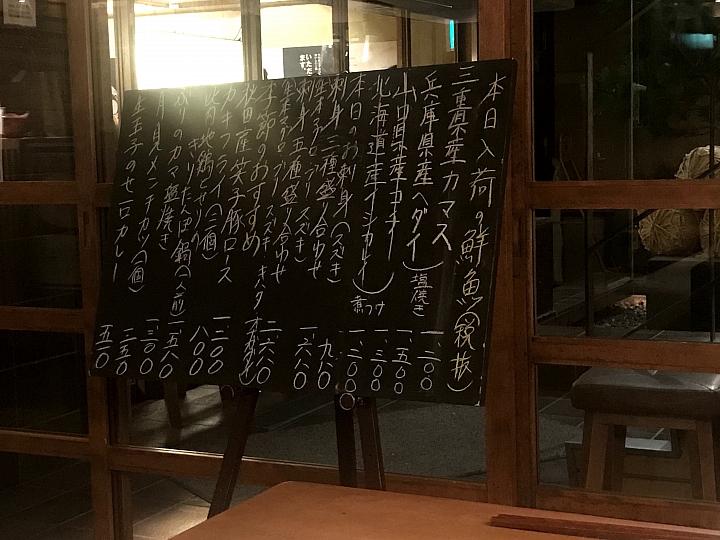 本日入荷の鮮魚(税抜)
三重県産カマス 一、二〇〇
兵庫県産ヘダイ 一、五〇〇
塩焼き
山口県産 一、三〇〇
北海道産イシガレイ 一、二〇〇
煮つけ
本日のお刺身(スズキ) 九八〇
刺身三種盛り合わせ 一、六八〇
生本マグロ、ブリ、スズキ
刺身五種盛り合わせ 二、六八〇
生本マグロ、ブリ、スズキ、キハタ
季節のおすすめ
秋田産笑子豚ロース 一、二〇〇
カキフライ(二個) 八〇〇
比内地鶏とせりの
きりたんぽ鍋(一人前) 一、五八〇
ブリのカマ塩焼き 一、三〇〇
月見メンチカツ(一個) 三五〇
カレー 五五〇
いただ
ます。